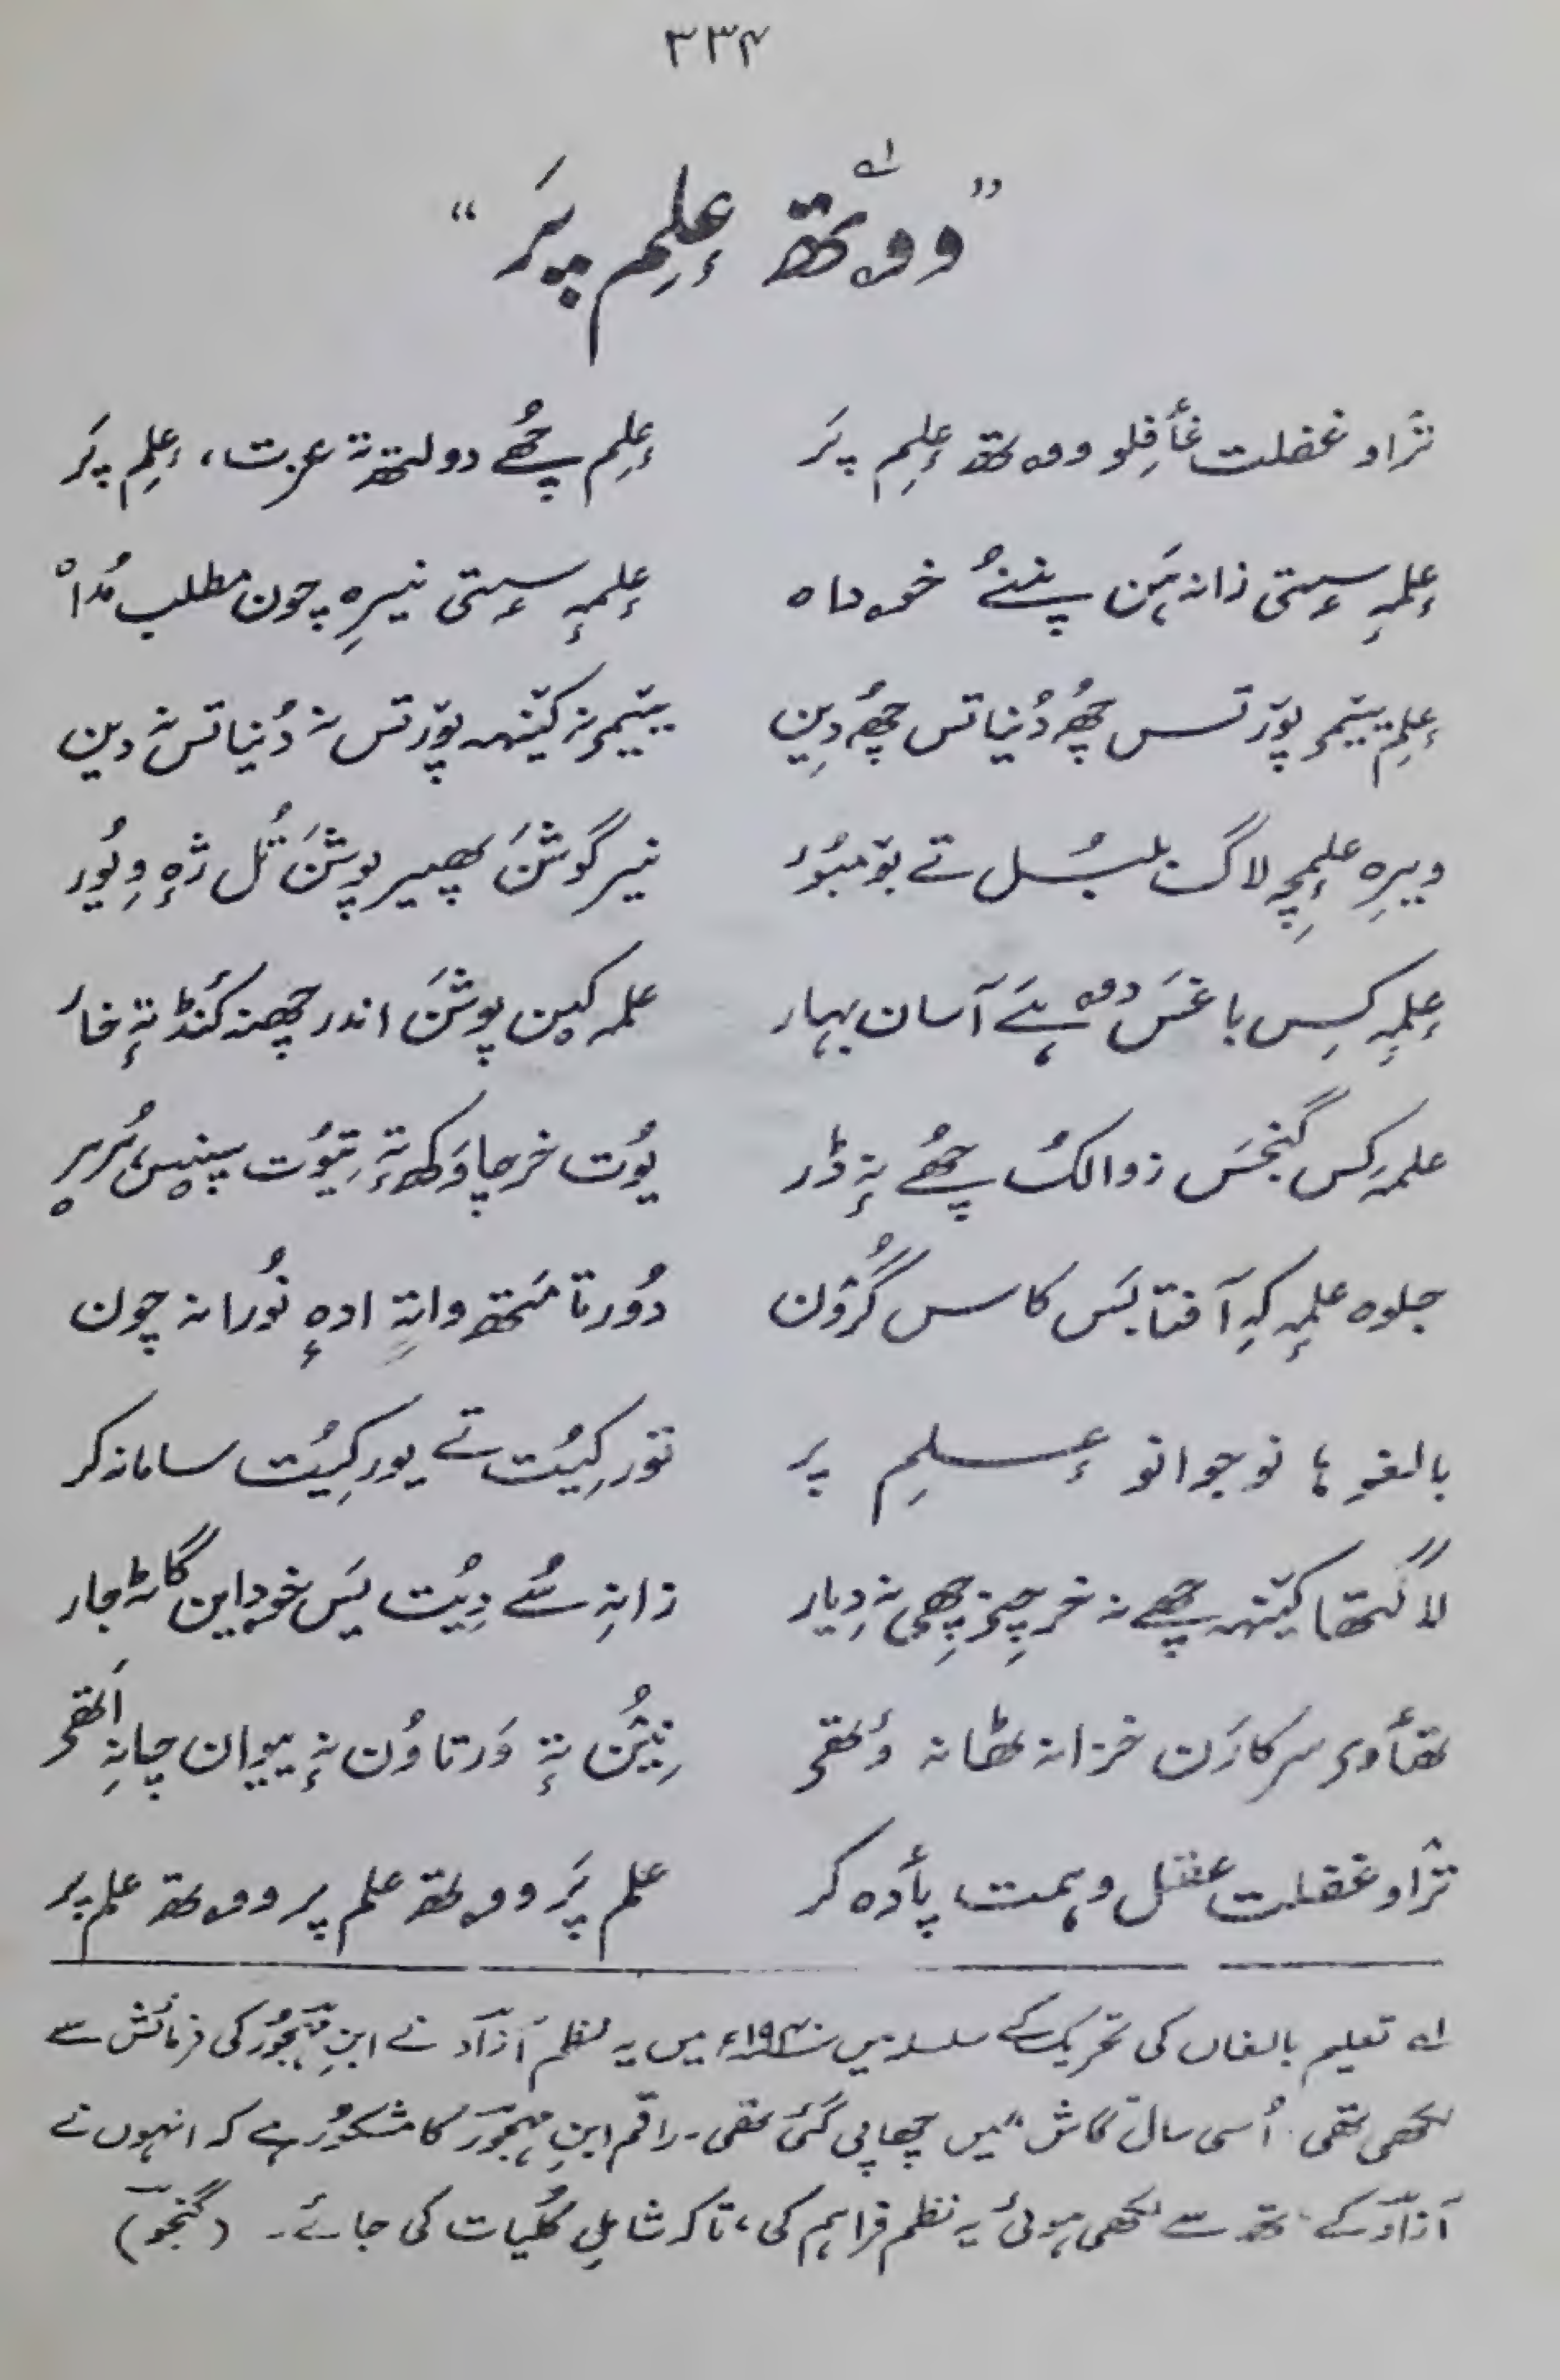 ۳۳۴
”ووتھ عِلِم پَر“ ؎۱
ترٛاو غفلت غأفِلو ووتھ عِلِم پَر عِلِم چھُے دولتھ تہٕ عزت، عِلِم پَر
عِلمہٕ سٟتی زانہٕ ہَن پننُے خودہ عِلمہٕ سٟتی نیرِہ چون مطلب مُدا
عِلِم یٔتمۍ پوٚر تس چھُ دُنیا تس چھُ دِین یٔتمۍ نہٕ کینٛہہ پوٚر تس نہٕ دُنیا تس نہٕ دین
ویرِہ علمٕچہِ لاگ بلبُل تے بوٚمبُر نیر گوشَن پھیر پوشَن تُل ژٕہ وِیُور
عِلمہٕ کِس باغس دوہ ہَے آسان بہار علمہ کین پوشَن اندر چھنہ کَنڈ تہٕ خار
علمہٕ کِس گنجَس زوالُک چھُے نہٕ ڈر یُوت خرچاوَکھ تہٕ تیُوت بنیس ہُرِر
جلوہ علمہٕ کہِ آفتابَس کاسِ گرُون دُور تا متھ واتہِ ادہٕ نُورانہ چون
بالغو ہا نوجوانو عِلِم پر توٚر کیُت تے یور کیُت سامانہ کر
لاگتھا کینٛہہ چھے نہٕ خرچٕچ چھی نہٕ دِیار زانہِ سُے دِیُت یَس خودایَن گاٹہٕ جار
تھأوۍ سرکارَن خزانہ ٹھانہ وٚتھۍ نِیُن تہٕ وَرتاوُن نہٕ یِوان چانہِ اَتھۍ
ترٛاو غفلت عقل و ہمت پأدہ کر علم پَر ووتھ علم پر ووتھ علم پر
؎۱ تعلیم بالغاں کی تحریک کے سلسلہ میں ۱۹۴۰ء میں یہ نظم آزاد نے ابنِ مہجُور کی فرمائش سے
لکھی تھی۔ اُسی سال گاش میں چھاپی گئی تھی۔ راقم ابنِ مہجور کا مشکور ہے کہ انہوں نے
آزاد کے ہاتھ سے لکھی ہوئی یہ نظم فراہم کی، تاکہ شاملِ کُلیات کی جائے۔ (گنجو)